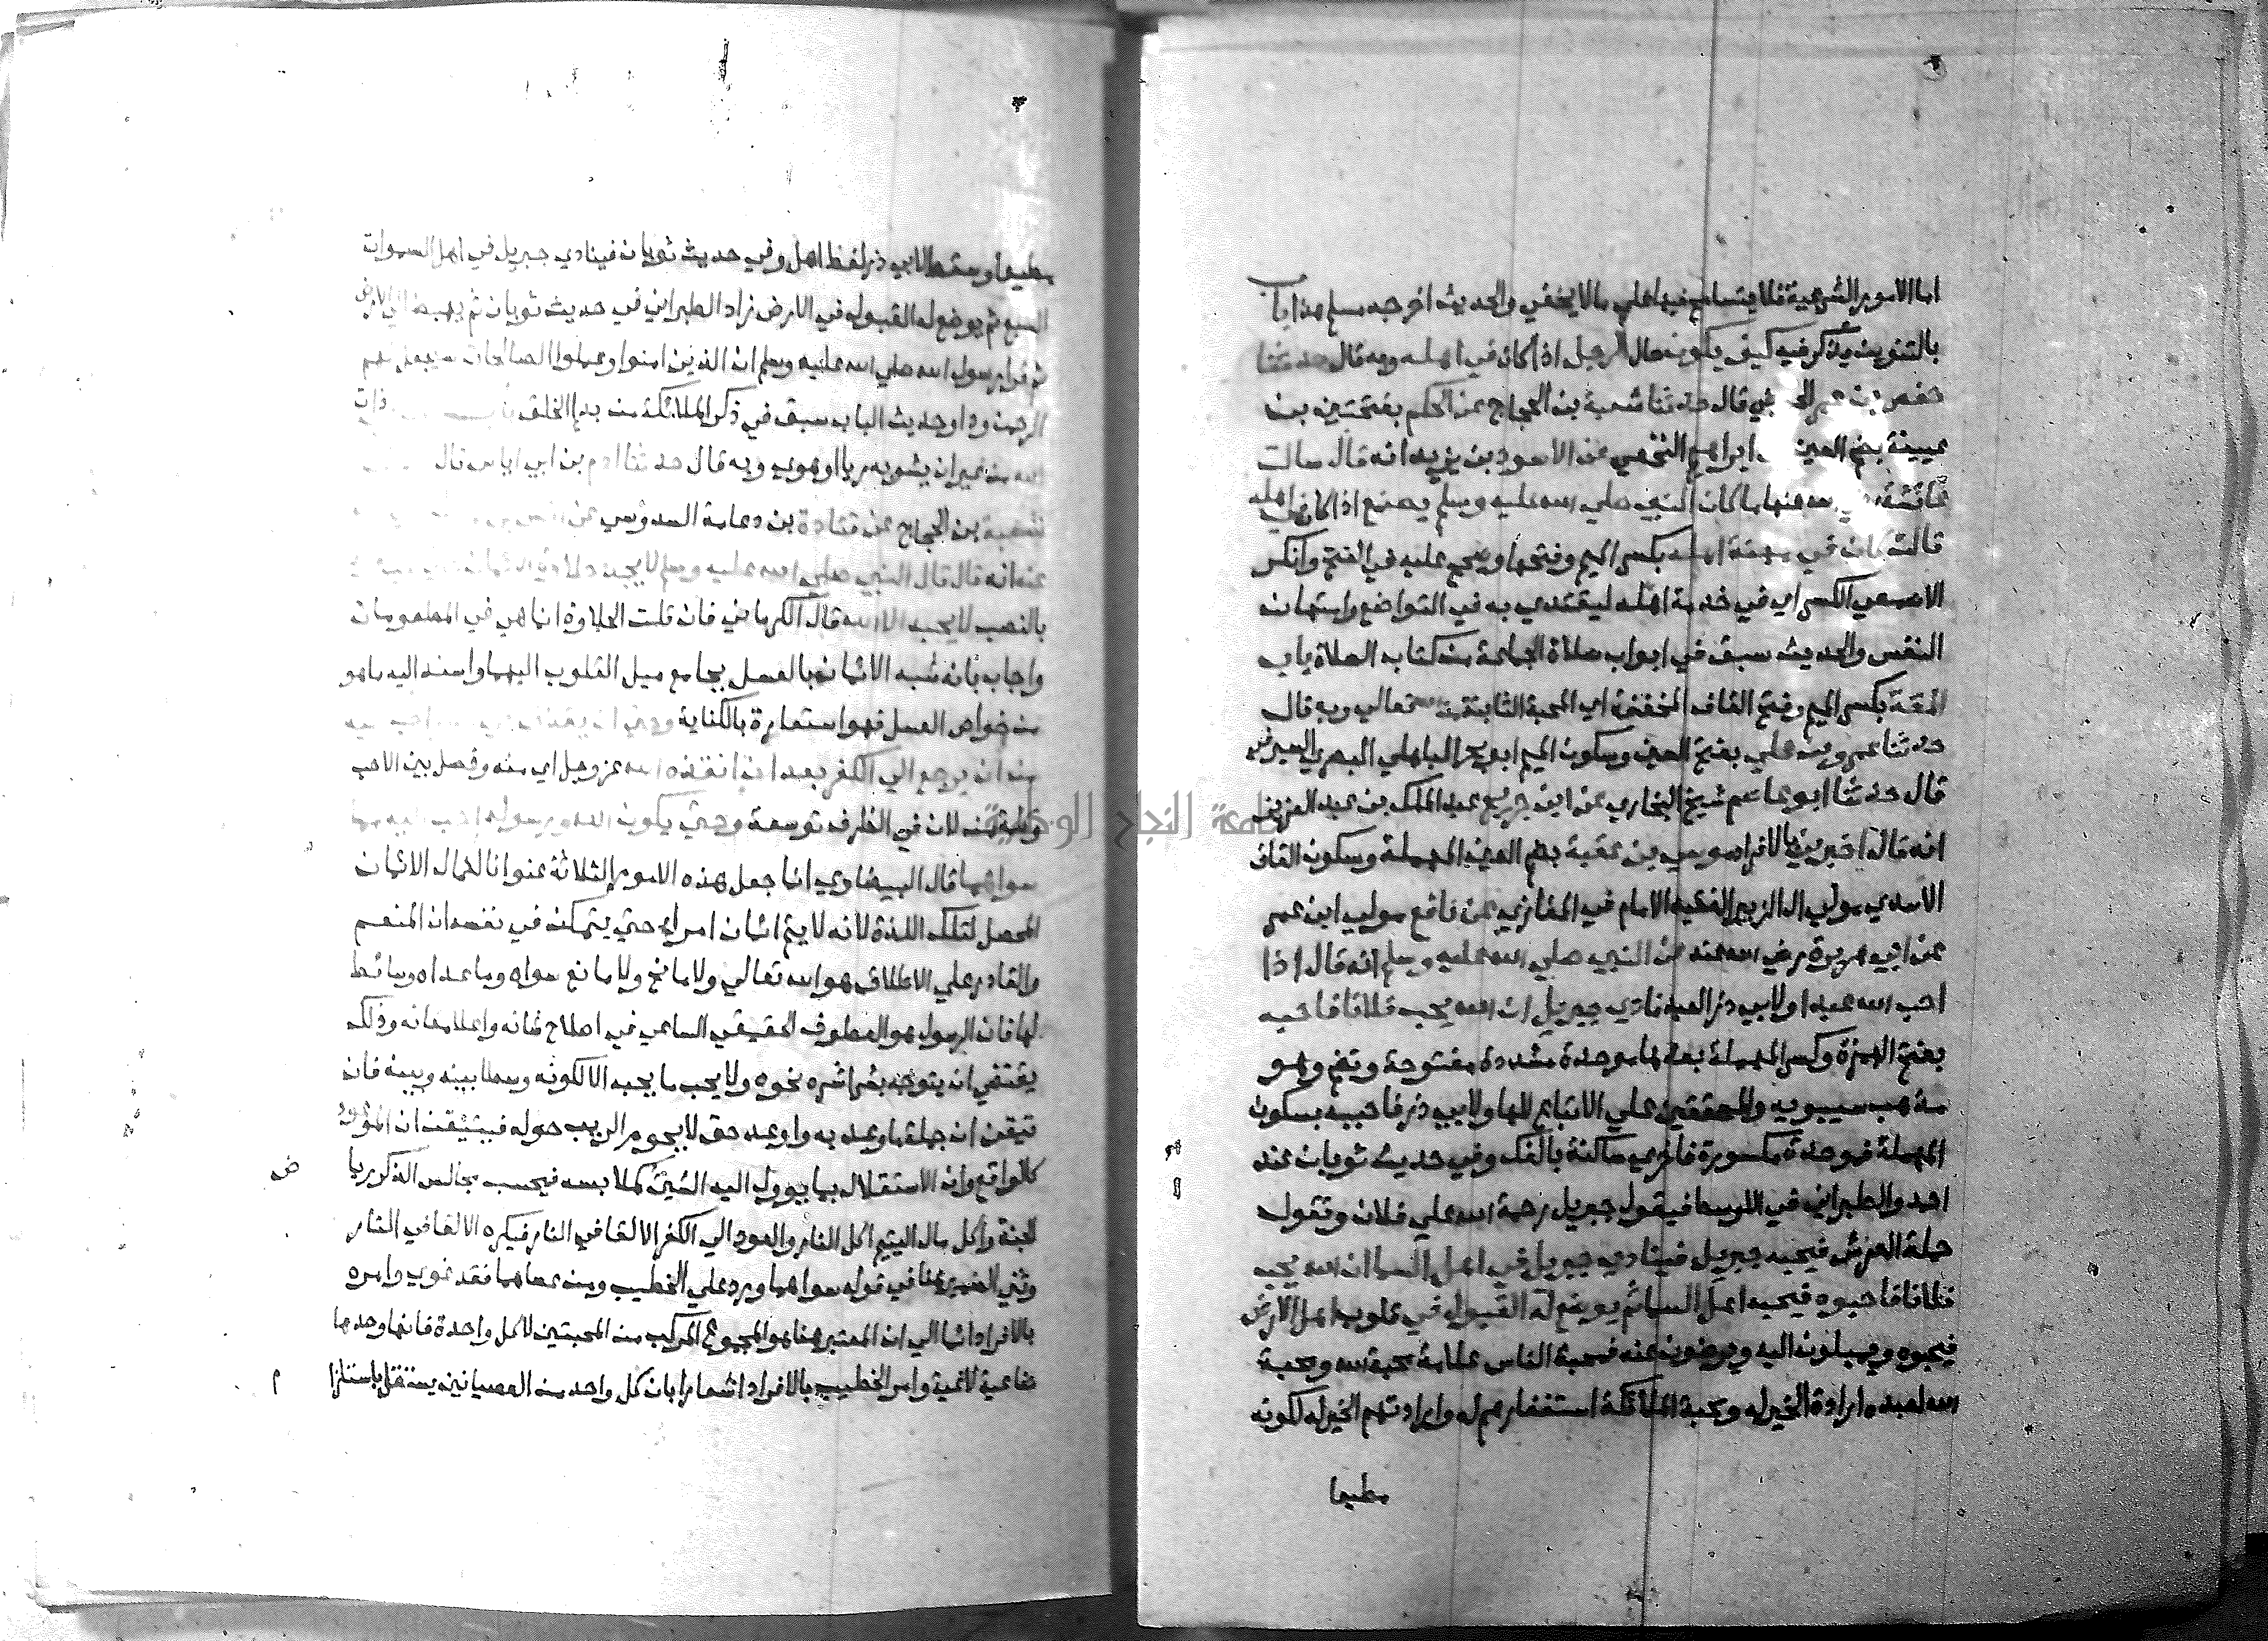 اما الامور الشرعية فلا يتسامح فيها علي ما لا يخفي والحديث اخرجه مسلم هذا باب
بالتنوين يذكر فيه كيف يكون حال الرجل اذا كان في اهله وبه قال حدثنا
حفص بن عمر قال حدثنا شعبة بن الحجاج عن الحكم بفتحتين بن
عيينة بضم العين ابراهيم النخعي عن الاسود بن يزيد انه قال سالت
عائشة الله عنها ما كان النبي صلي الله عليه وسلم يصنع اذا كان في اهله
قالت كان في مهنة اهله بكسر الميم وفتحها وصحح عليه في الفتح وانكر
الاصمعي الكسر اي في خدمة اهله ليقتدي به في التواضع وامتهان
النفس والحديث سبق في ابواب صلاة الجماعة من كتاب الصلاة باب
المقة بكسر الميم وفتح القاف المخففة اي المحبة الثابتة من الله تعالي وبه قال
حدثنا عمرو بن علي بفتح العين وسكون الميم ابو بحر الباهلي البصري الصيرفي
قال حدثنا ابو عاصم شيخ البخاري عن ابن جريج عبد الملك بن عبد العزيز
انه قال اخبرني بالافراد موسي بن عقبة بضم العين المهملة وسكون القاف
الاسدي مولي ال الزبير الفقيه الامام في المغازي عن نافع مولي ابن عمر
عن ابي هريرة رضي الله عنه عن النبي صلي الله عليه وسلم انه قال اذا
احب الله عبدا ولابي ذر العبد نادي جبريل ان الله يحب فلانا فاحبه
بفتح الهمزة وكسر المهملة بعدها موحدة مشددة مفتوحة وتضم وهو
مذهب سيبويه والمحققين علي الاتباع للها ولابي ذر فاحببه بسكون
المهملة فموحدة مكسورة فاخري ساكنة بالفك وفي حديث ثوبان عند
احمد والطبراني في الاوسط فيقول جبريل رحمة الله علي فلان وتقول
حملة العرش فيحبه جبريل فينادي جبريل في اهل السما ان الله يحب
فلانا فاحبوه فيحبه اهل السما ثم يوضع له القبول في قلوب اهل الارض
فيحبوه ويميلون اليه ويرضون عنه فمحبة الناس علامة محبة الله ومحبة
الله لعبده ارادة الخير له ومحبة الملائكة استغفارهم له وارادتهم الخير له لكونه
مطيعا
مطيعا وسقط لابي ذر لفظ اهل وفي حديث ثوبان فينادي جبريل في اهل السموات
السبع ثم يوضع له القبول في الارض زاد الطبراني في حديث ثوبان ثم يهبط الي الارض
ثم قرا رسول الله صلي الله عليه وسلم ان الذين امنوا وعملوا الصالحات سيجعل لهم
الرحمن ودا وحديث الباب سبق في ذكر الملائكة من بدء الخلق
الله من غير ان يشوبه ريا او هوي وبه قال حدثنا ادم بن ابي اياس قال
شعبة بن الحجاج عن قتادة بن دعامة السدوسي عن
عنه انه قال قال النبي صلي الله عليه وسلم لا يجد حلاوة الايمان
بالنصب لا يحبه الا لله قال الكرماني فان قلت الحلاوة انما هي في المطعومات
واجاب بانه شبه الايمان بالعسل بجامع ميل القلوب اليهما واسند اليه ما هو
من خواص العسل فهو استعارة بالكناية وحتي ان يقذف احب اليه
من ان يرجع الي الكفر بعد اذ انقذه الله عز وجل اي منه وفصل بين الاحب
وكلمة من لان في الظرف توسعة وحتي يكون الله ورسوله احب اليه مما
سواهما قال البيضاوي انما جعل هذه الامور الثلاثة عنوانا لكمال الايمان
المحصل لتلك اللذة لانه لا يتم ايمان امرئ حتي يتمكن في نفسه ان المنعم
والقادر علي الاطلاق هو الله تعالي ولا مانح ولا مانع سواه وما عداه وسائط
لها فان الرسول هو العطوف الحقيقي الساعي في اصلاح شانه واعلا مكانه وذلك
يقتضي ان يتوجه بشراشره نحوه ولا يحب ما يحبه الا لكونه وسطا بينه وبينه فان
تيقن ان جملة ما وعد به واوعد حق لا يحوم الريب حوله فيتيقن ان الموعود
كالواقع وان الاستقلال بما يوول اليه الشيئ كملابسه فيحسب مجالس الذكر ريا
ض
الجنة واكل مال اليتيم اكل النار والعود الي الكفر الالقا في النار فيكره الالقا في النار
وثني الضمير هنا في قوله سواهما ورد علي الخطيب ومن عصاهما فقد غوي وامره
بالافراد ايما الي ان المعتبر هنا هو المجموع المركب من المحبتين لا كل واحدة فانها وحدها
ضاعية لاغية وامر الخطيب بالافراد اشعارا بان كل واحد من العصيانين يستقل باستلزا
م
جامعة النجاح الوطنية